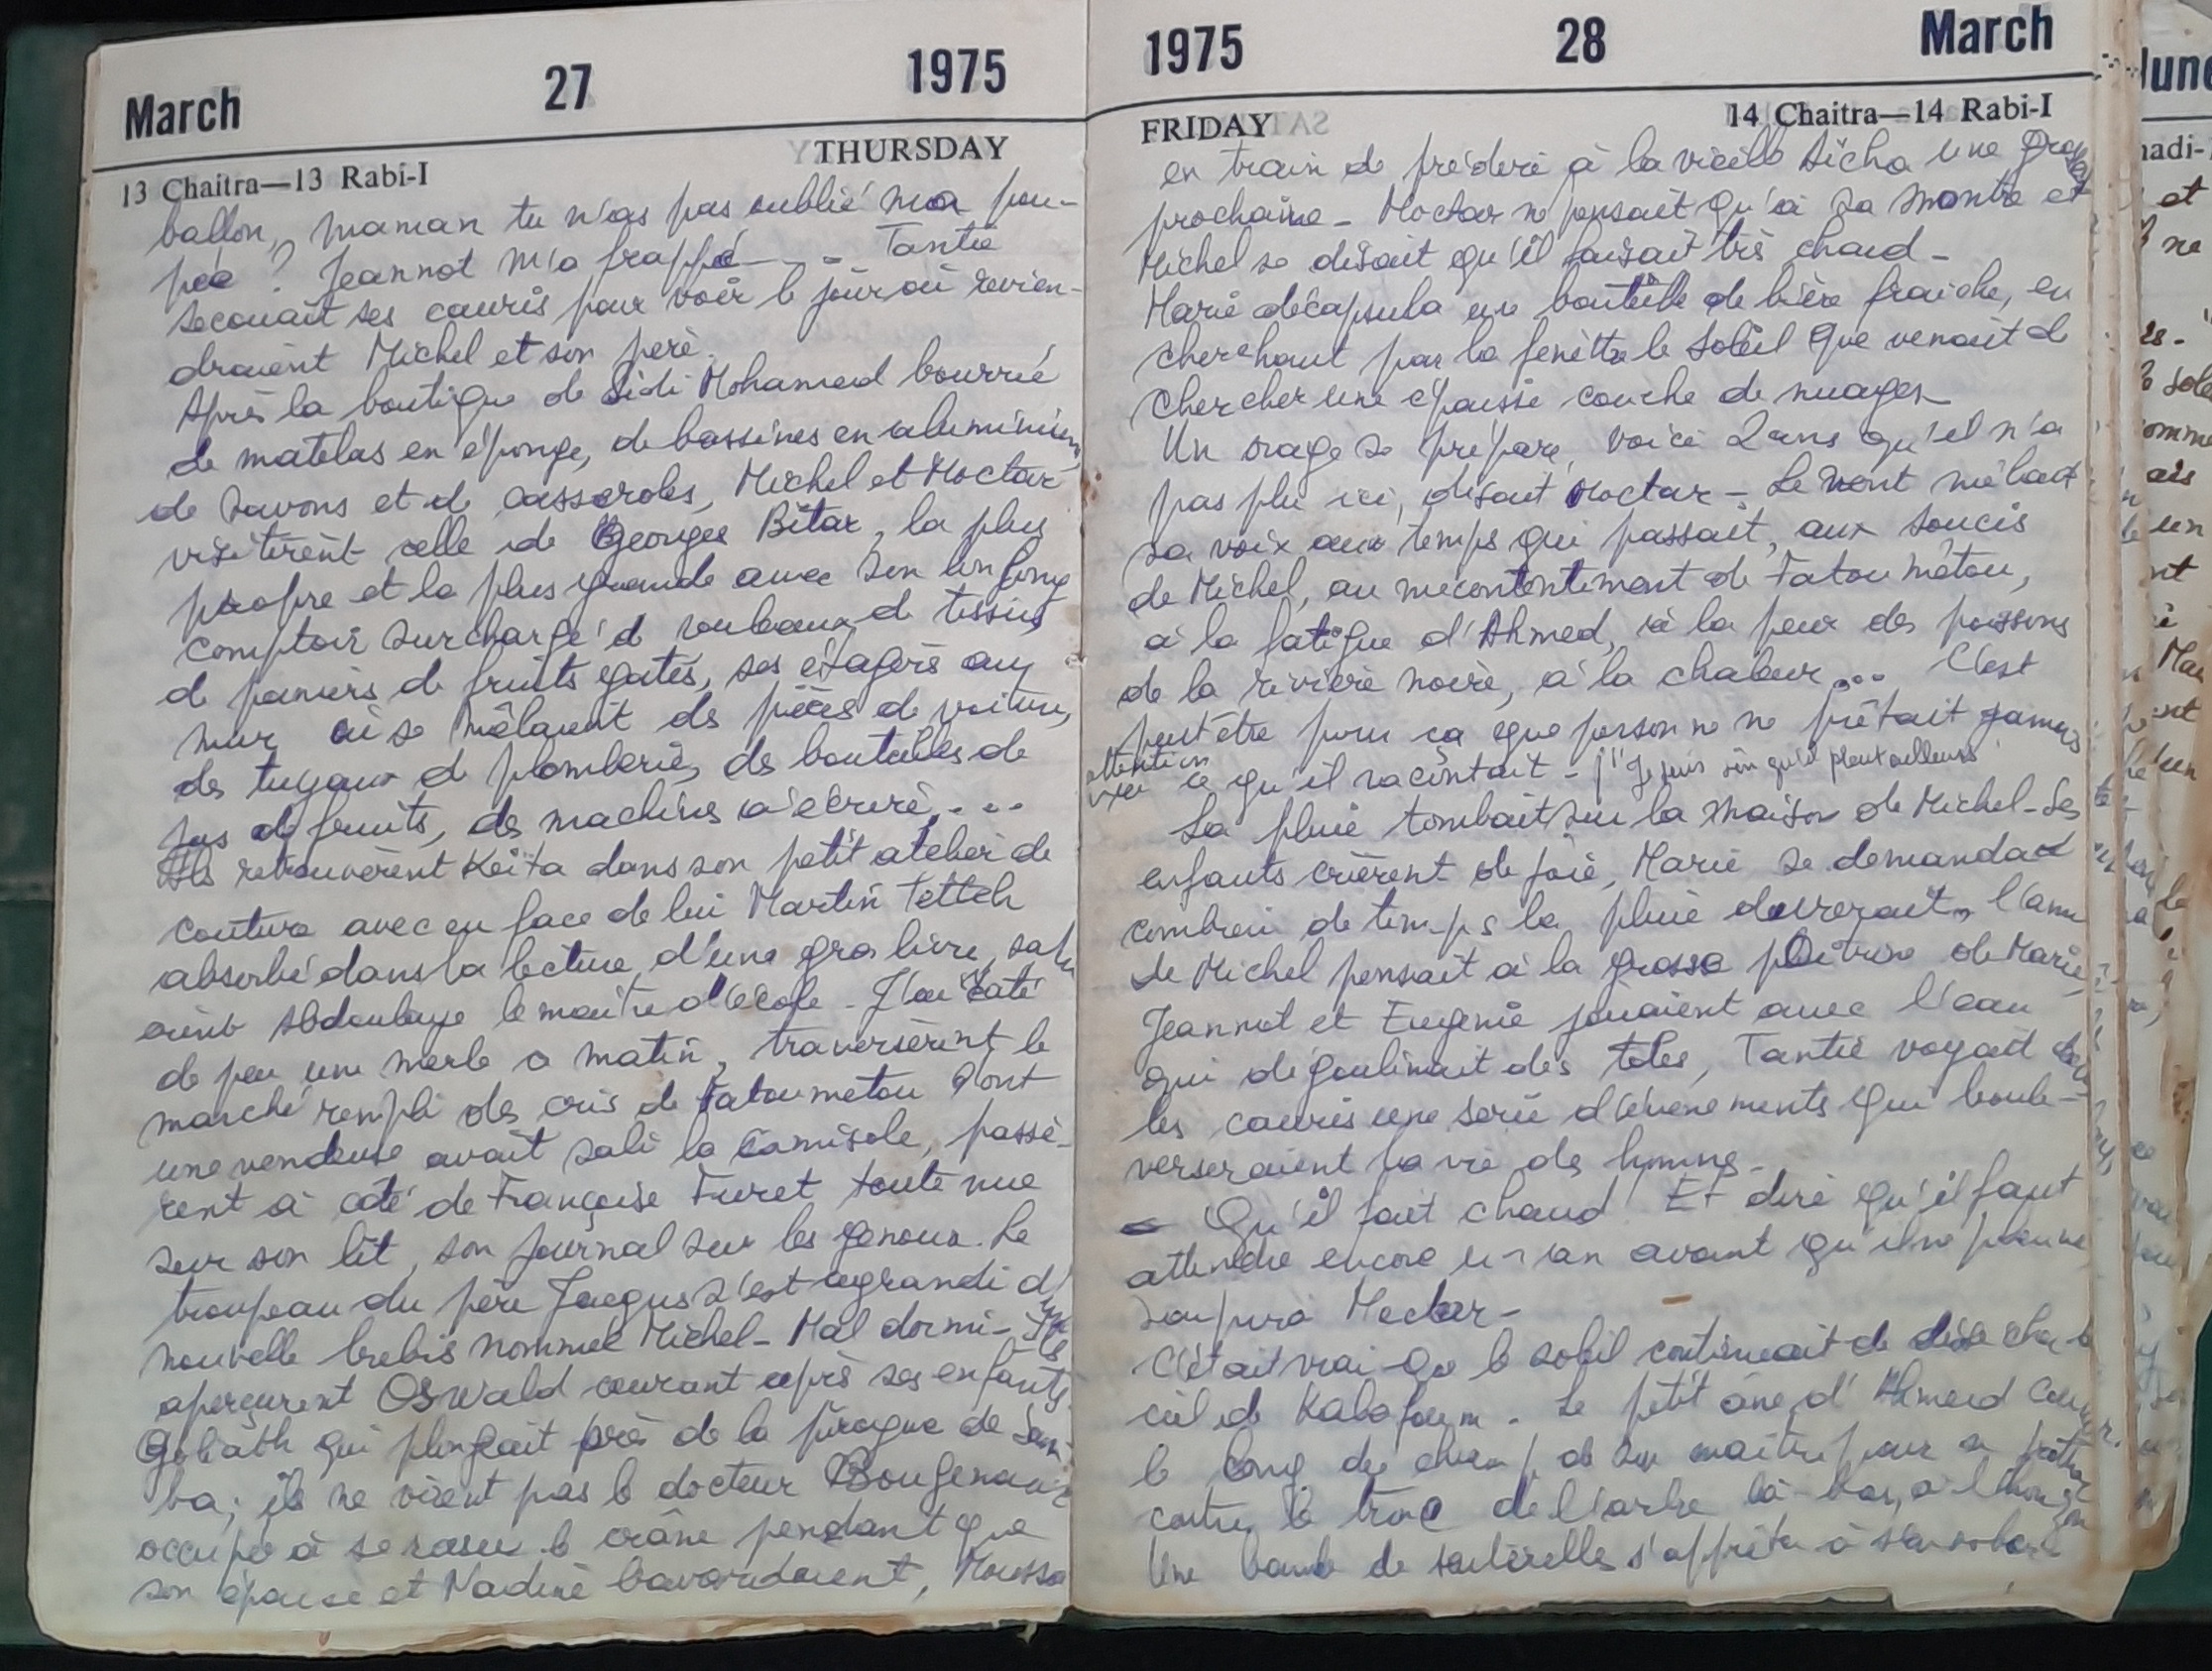 March 27 1975
13 Chaitra—13 Rabi-I THURSDAY
ballon, maman tu n'as pas oublié ma pou-
pée ? Jeannot m'a frappé — . . Tantie
secouait ses cauris pour voir le jour où revien-
draient Michel et son père.
Après la boutique de Sidi Mohamed bourrié
de matelas en éponge, de bassines en aluminium,
de savons et de casseroles, Michel et Moctar
visitèrent celle de Georges Bitar, la plus
propre et la plus grande avec son long
comptoir surchargé de rouleaux de tissus
de paniers de fruits gatés, ses étagères au
mur où se mêlaient des pièces de voiture,
des tuyaux de plomberie, des bouteilles de
jus de fruits, des machines à écrire, . . .
Ils retrouvèrent Keïta dans son petit atelier de
couture avec en face de lui Martin Tetteh
absorbé dans la lecture d'une gros livre, salu
èrent Abdoulaye le maître d'école - J'ai raté
de peu un merle ce matin, traversèrent le
marché rempli des cris de Fatoumatou dont
une vendeuse avait sali la camisole, passè-
rent à côté de Françoise Furet toute nue
sur son lit, son journal sur les genoux. Le
troupeau du père Jacques s'est agrandi d'une
nouvelle brebis nommée Michel - Mal dormi - Ils
aperçurent Oswald courant après ses enfants,
Goliath qui plongeait près de la pirogue de Sam-
ba ; ils ne virent pas le docteur
occupé à se raser le crâne pendant que
son épouse et Nadine bavardaient, Moussa
1975 28 March
FRIDAY 14 Chaitra—14 Rabi-I
en train de prédire à la vieille Aïcha une
prochaine - Moctar ne pensait qu'à sa montre et
Michel se disait qu'il faisait très chaud -
Marie décapsula une bouteille de bière fraiche, en
cherchant par la fenêtre le soleil que venait de
chercher une épaisse couche de nuages -
Un orage se prépare, voici 2 ans qu'il n'a
pas plu ici, disait Moctar - Le vent mêlait
sa voix au temps qui passait, aux soucis
de Michel, au mécontentement de Fatoumatou,
à la fatigue d'Ahmed, à la peur des poissons
de la rivière noire, à la chaleur ... C'est
peut être pour ça que personne ne prêtait jamais
attention
à ce qu'il racontait - Je suis sûr qu'il pleut ailleurs
La pluie tombait sur la maison de Michel - Les
enfants crièrent de joie, Marie se demandait
combien de temps la pluie durerait, l'ami
de Michel pensait à la grosse poitrine de Marie,
Jeannot et Eugenie jouaient avec l'eau
qui dégoulinait des toles, Tantie voyait dans
les cauris une serie d'évènements qui boule-
verseraient la vie des hommes -
- Qu'il fait chaud ! Et dire qu'il faut
attendre encore un an avant qu'il ne pleuve
soupira Moctar -
C'était vrai que le soleil continuait de
ciel de Kalafoum . Le petit âne d'Ahmed
le long du champ de son maître pour se frotter
contre le tronc de l'arbre là-bas, à l'horizon
Une bande de sauterelles s'apprête à s'envoler